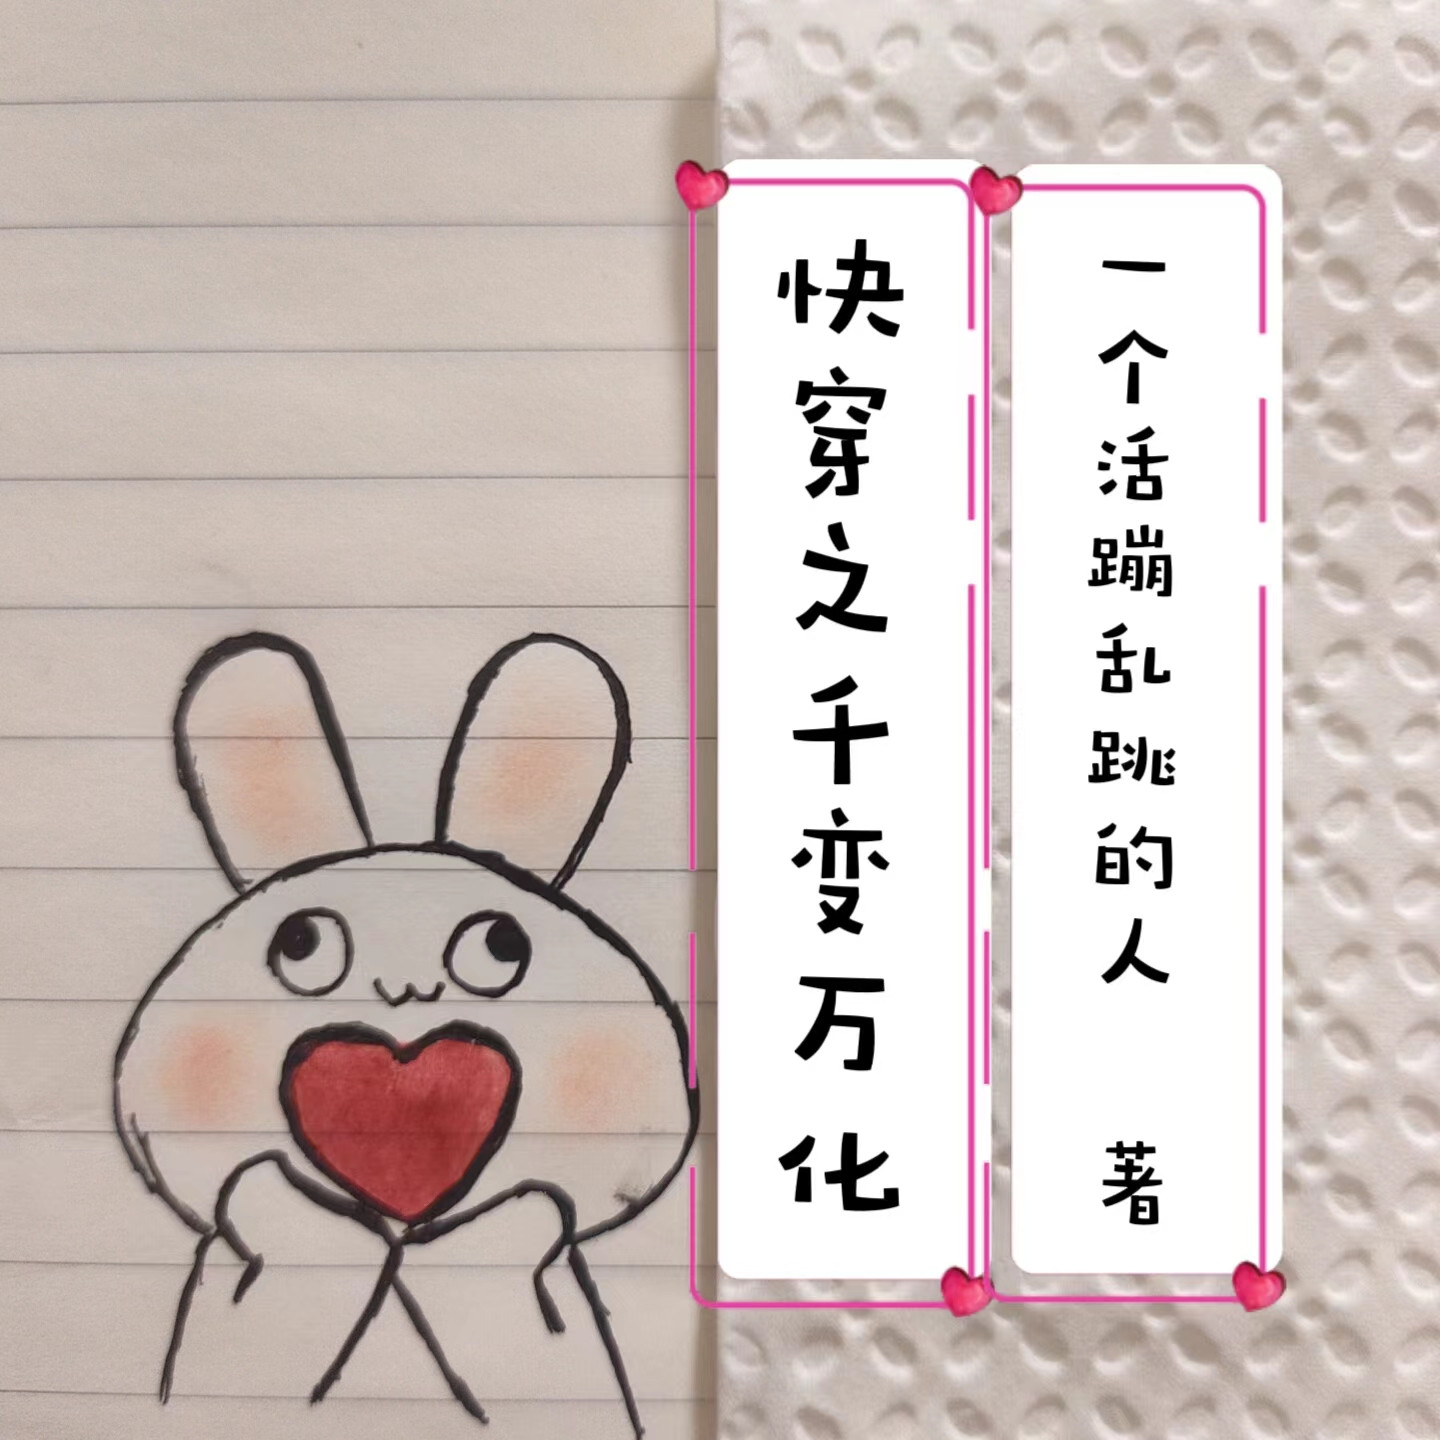 快穿之千变万化
一个活蹦乱跳的人 著